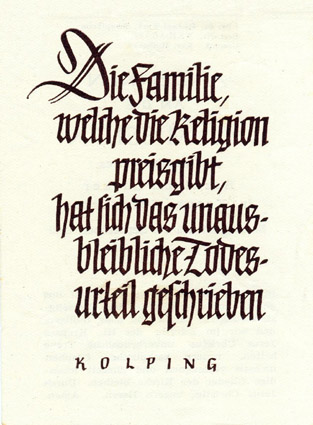 Die Familie,
welche die Religion
preisgibt,
hat sich das unaus-
bleibliche Todes-
urteil geschrieben
KOLPING